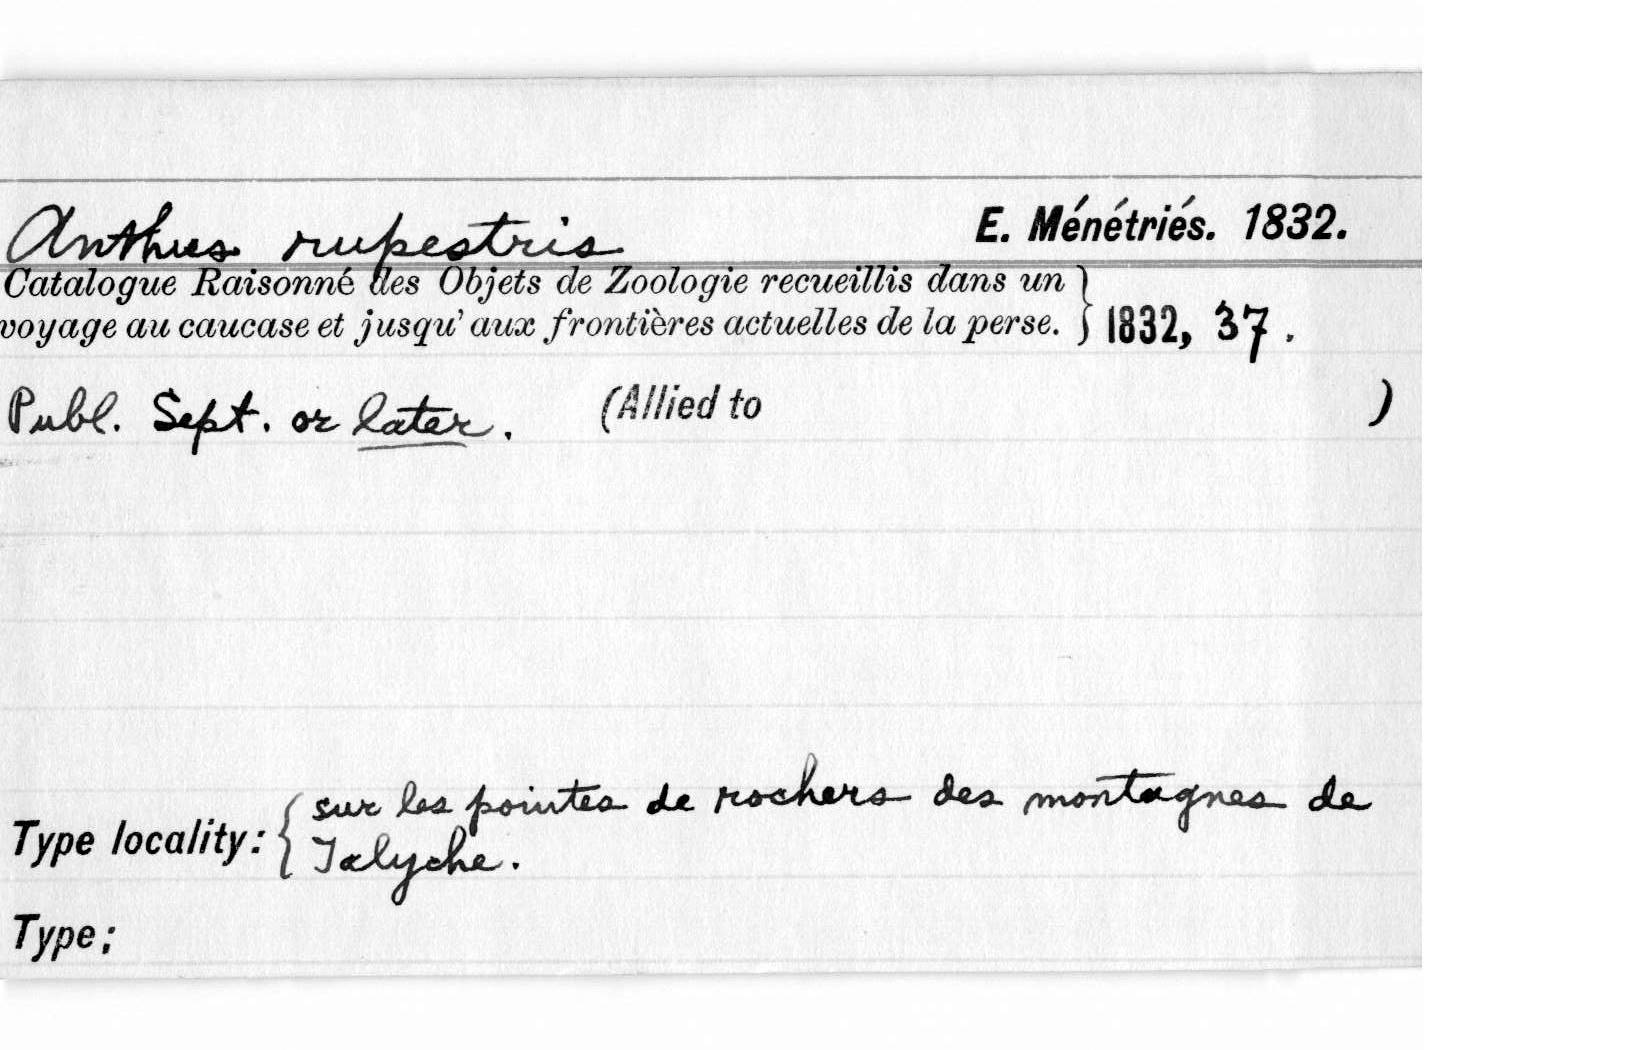 Anthus rupestris E. Ménétriés. 1832.
Catalogue Raisonné des Objets de Zoologie recueillis dans un
voyage au caucase et jusqu' aux frontières actuelles de la perse. } 1832, 37.
Publ. Sept. or later. (Allied to )
Type locality: { sur les pointes de rochers des montagnes de
Talyche.
Type;